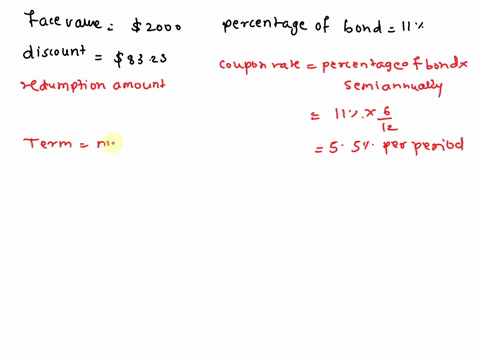 Face value = $2000
discount = $83.25
redumption amount
Term = no
percentage of bond = 11%
coupon rate = percentage of bond x
semiannually
= 11% x 6/12
= 5.5% per period